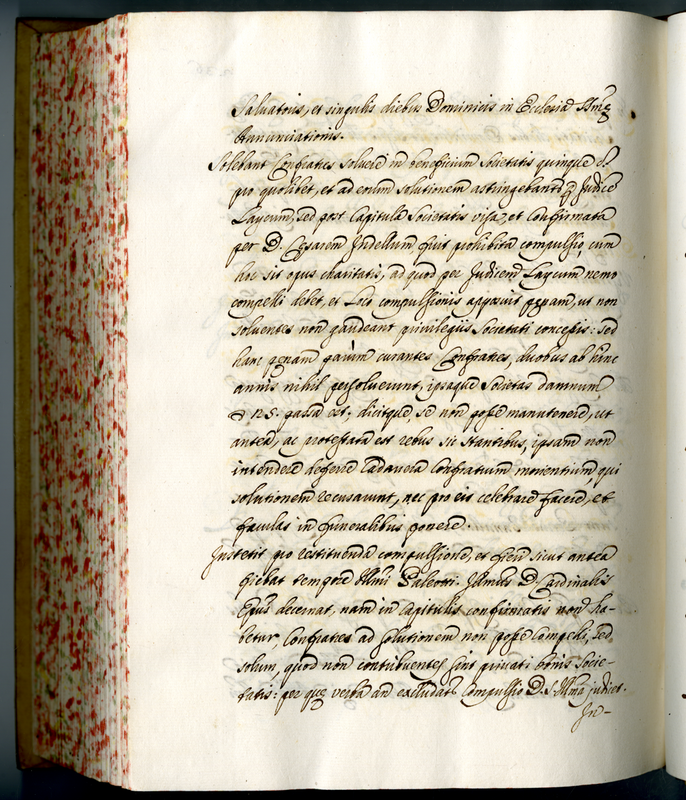 Salvatoris, et singulis diebus Dominicis in Ecclesia Smę
Annunciationis.
Solebant Confratres solvere in beneficium Societatis quinque
pro quolibet, et ad eorum solutionem astringebantr ꝑ Judicē
Laycum, sed post Capitula Societatis visa, et confirmata
per D. Cęsarem Indellum fuit prohibita compulsio, cum
hoc sit opus charitatis, ad quod per Judicem Laycum nemo
compelli debet, et Loco compulsionis apposuit pęnam, ut non
solventes non gaudeant privilegiis Societati concessis: sed
hanc pęnam parum curantes Confratres, duobus ab hinc
annis nihil persolverunt, ipsaque Societas damnum,
passa est, dicitque, se non posse manutenere, ut
antea, ac protestata est rebus sic stantibus, ipsam non
intendere deferre Cadavera Confratrum morientium qui
solutionem recusarunt, nec pro eis celebrare facere, et
faculas in funeralibus ponere.
Instetit pro restituenda compulsione, et fieri sicut antea
fiebat tempore Illmi Paleotti. Illmus D. Cardinalis
Epus decernat, nam in capitulis confirmatis non ha-
betur, Confratres ad solutionem non posse compelli, sed
solum, quod non contribuentes sint privati bonis Socie-
tatis: per quę verba an excludatr compulsio D. S. Illma judicet.
In-